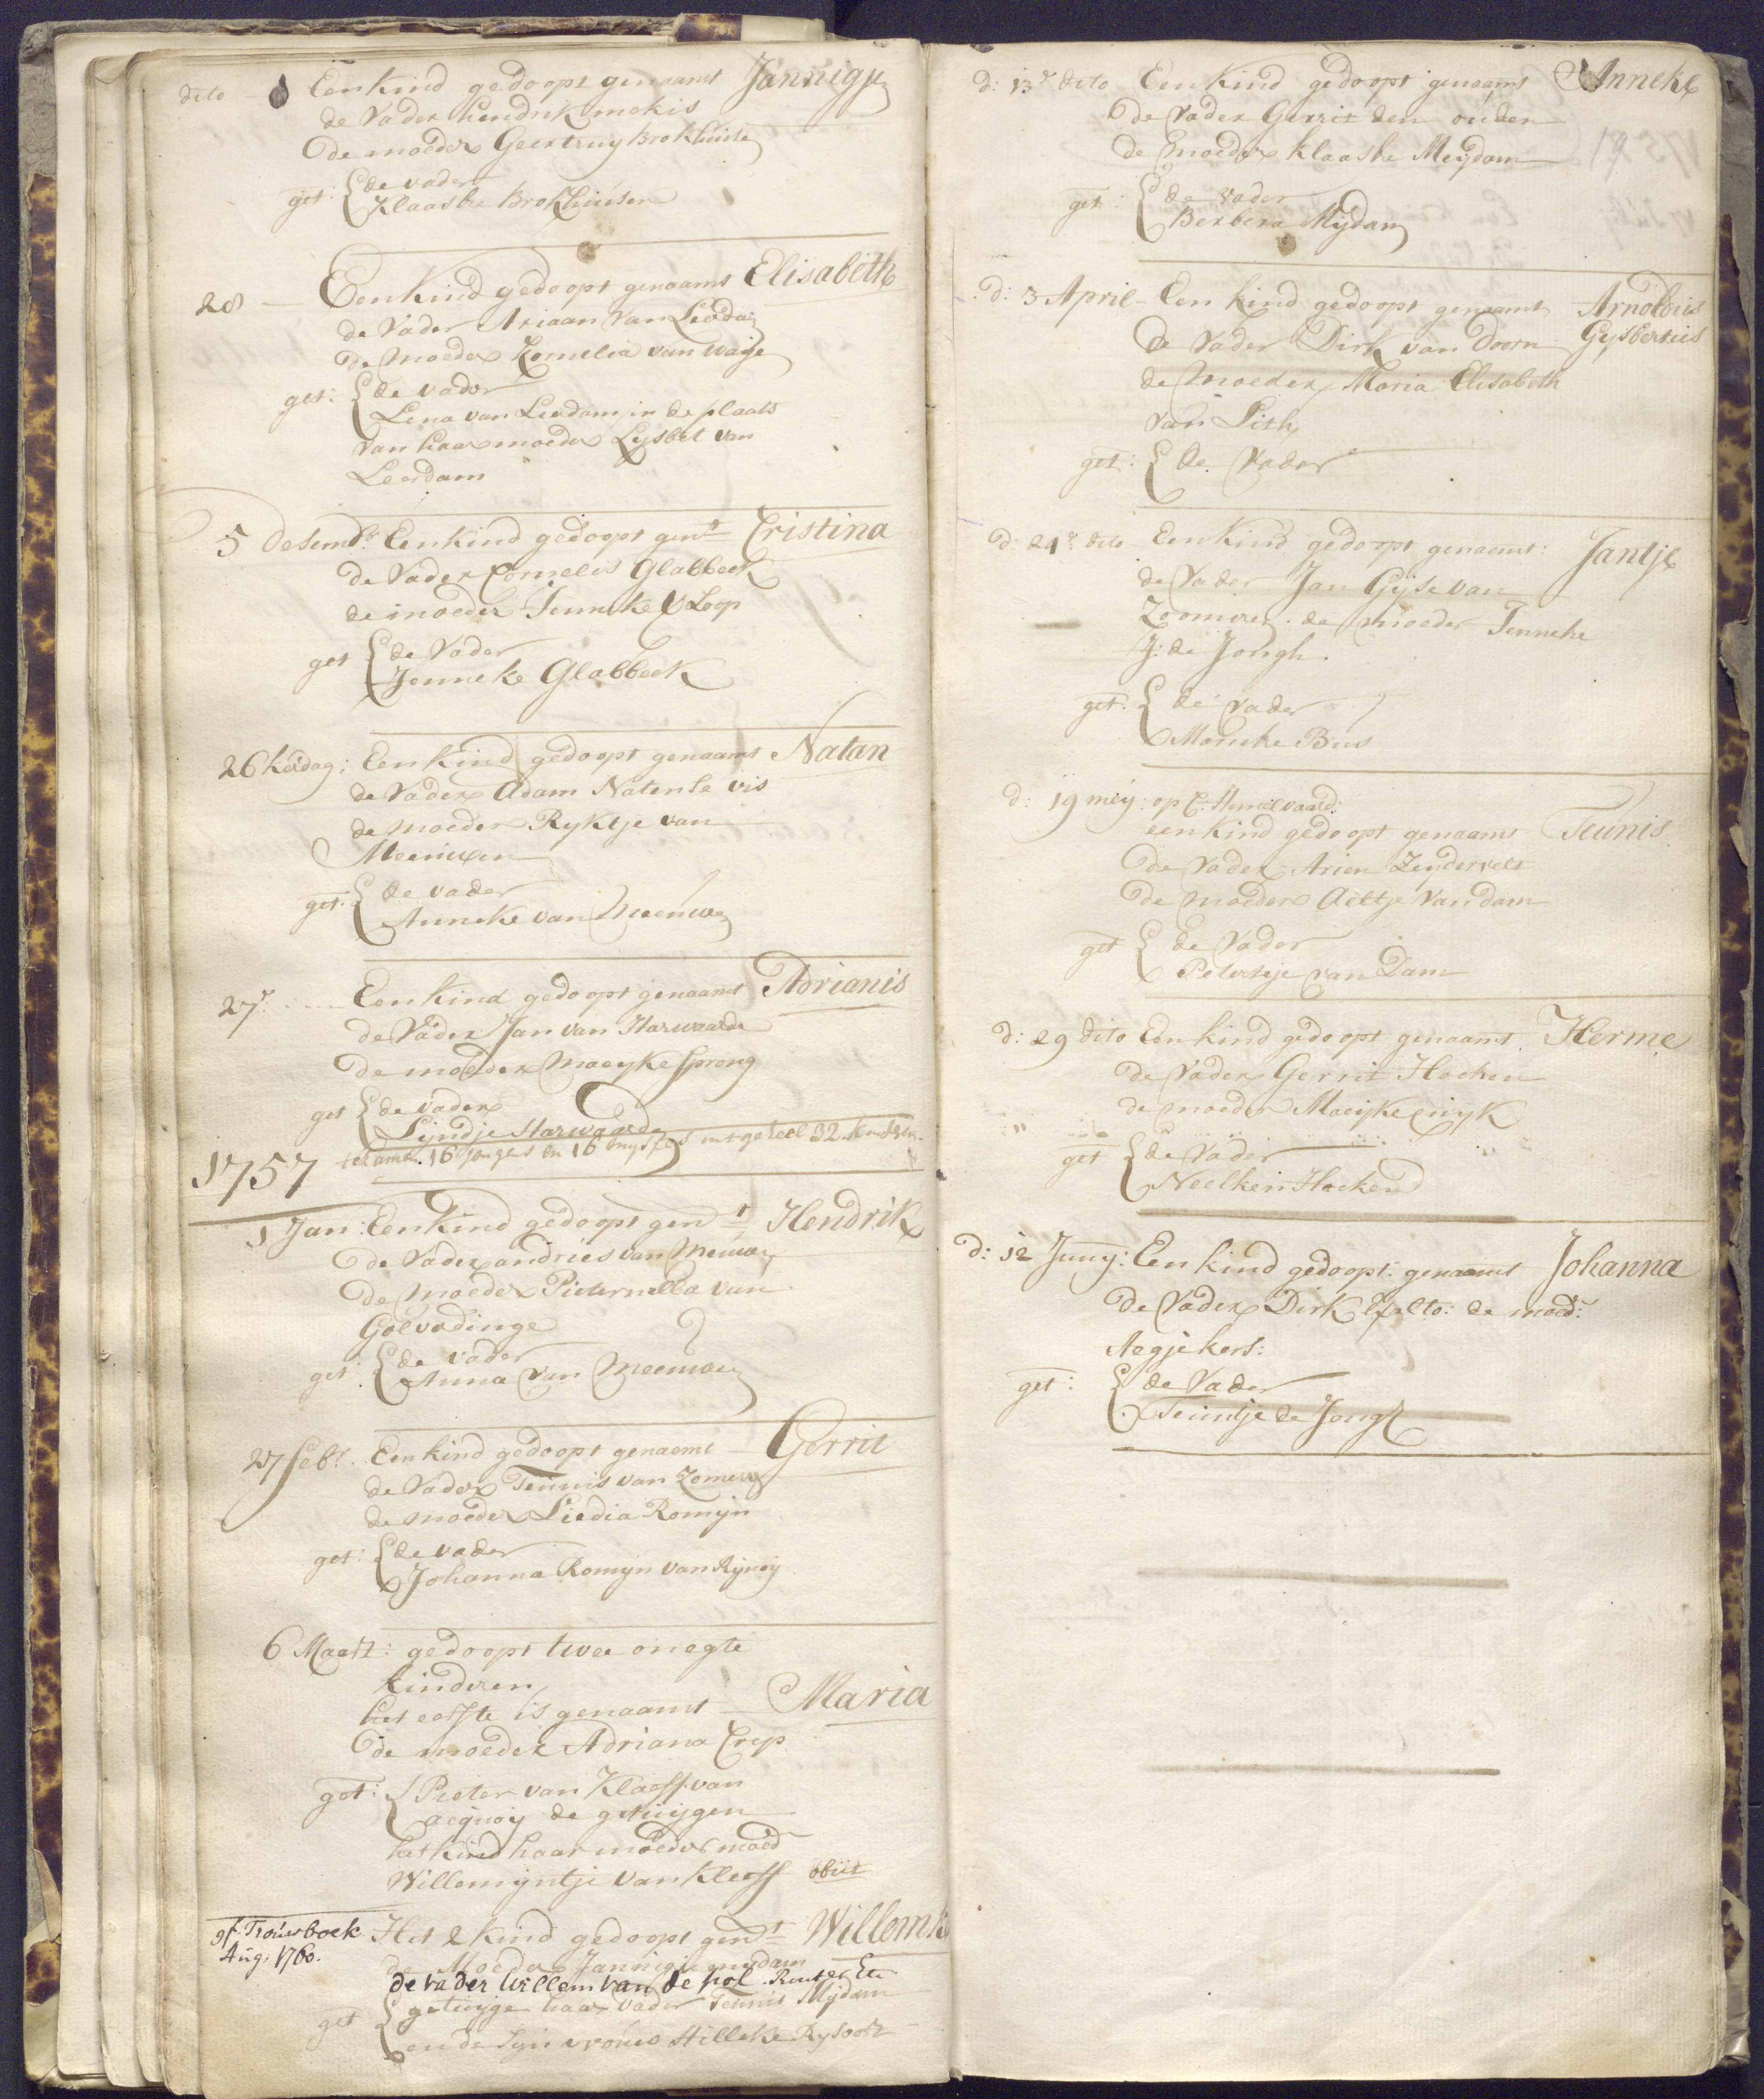 dito Een kind gedoopt genaamt Jannigje
de Vader Hendrik mekis
de moeder Geertruy Brokhuise
get: de vader
Klaaske Brokhuisen
28 — Een kind gedoopt genaamt Elisabeth
de Vader Ariaan van Leerda
de Moeder Kornelia van waije
get: de vader
Lena van Leerdam in de plaats
van haar moeder Lysbet van
Leerdam
5 Desembr: Een kind gedoopt gent Cristina
de Vader Cornelis Glabbeek
de moeder Jenneke V Loop
get de Vader
Jenneke Glabbeek
26 Kersdag: Een kind gedoopt genaamt Natan
de Vader Adam Natense vis
de moeder Ryktje van
Meeuwen
get: de vader
Anneke van Meeuwen
27e Een kind gedoopt genaamt Adrianis
de Vader Jan van Harwaarde
de moeder Maeyke Sprong
get de vader
Lijndje Harwaarde
1757 te samen 16 jongens en 16 muysjes int geheel 32 kinderen
1 Jan: Een kind gedoopt gent Hendrik
de Vader andries van Meeuwen
de moeder Pieternella van
Golverdinge
get: de vader
Anna van Meeuwen
27 febr. Een kind gedoopt genaemt Gerrit
de Vader Teunis van Zomeren
de moeder Liedia Romijn
get: de vader
Johanna Romijn van Rijnoij
6 Maert: gedoopt twee onegte
kinderen
het eerste is genaamt — Maria
de moeder Adriana Crep
get: Pieter van Klaeff van
acquoij de getuijgen
het kind haar moeder moed
Willemijntje van Kleeff obiit
gf. Trouwboek Het 2 kind gedoopt gent Willemke
Aug. 1760.
de Moeder Jannigje mydam
de vader Willem van de pol Ruiter Etc
get getuyge haar vader Teunis Mijdam
en de sijn vrouw Hilleke Rysoort
d: 13e dito Een Kind gedoopt genaamt Anneke
de Vader Gerrit den ouden
de moeder klaaske Meydam
get: de vader
Berbera Mydam
19
d: 3 April — Een kind gedoopt genaamt Arnoldus
de Vader Dirk van Doorn Gysbertus
de moeder Maria Elisabeth
van Lith
get: de Vader
d: 24e dito Een Kind gedoopt genaemt: Jantje
de Vader Jan Gijse van
Zoomeren. de moeder Tenneke
J: de Jongh.
get: de vader
Maneke Bus
d: 19 meij: op C: Hemelvaard:
een kind gedoopt genaamt Teunis
de Vader Arien Zeydervelt
de moeder Aeltje van dam
get de Vader
Petersije van Dam
d: 29 dito Een kind gedoopt genaamt Herme
de Vader Gerrit Hocken
de moeder Maeijke wijk
get de Vader
Neelken Hocken
d: 12 Junij: Een kind gedoopt: genaamt Johanna
de Vader Dirk to: de moed:
Aegje kers:
get: de Vader
Teuntje de Jongh